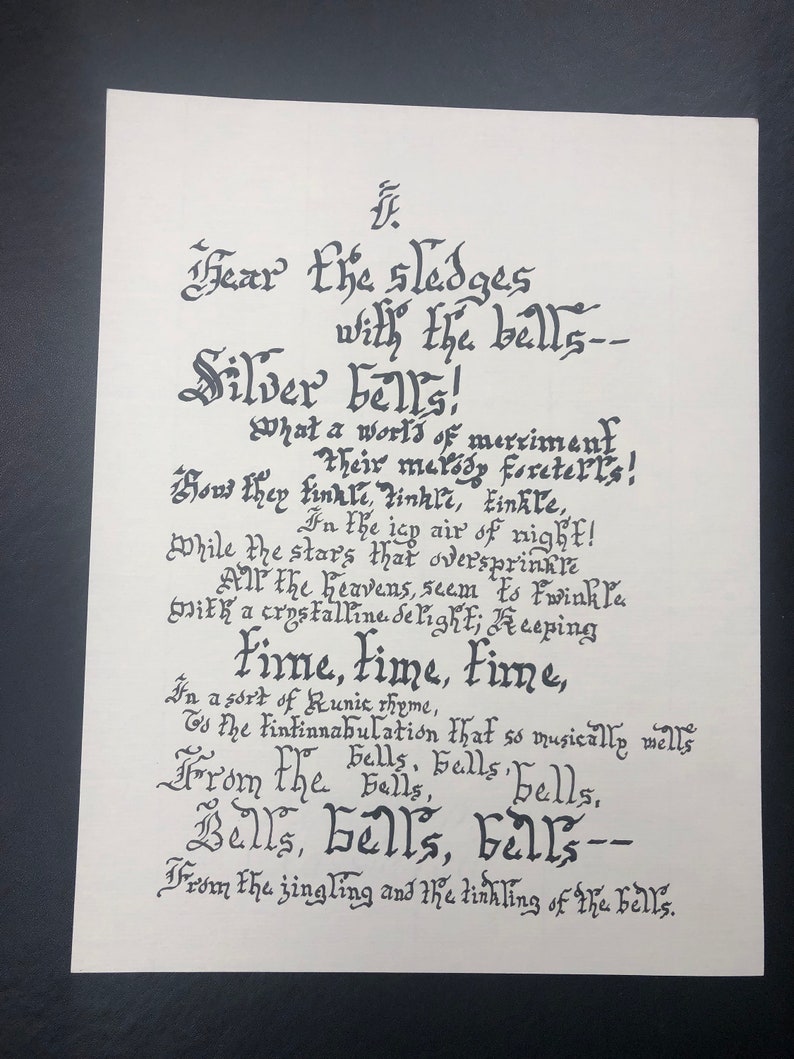 I.
Hear the sledges
with the bells--
Silver bells!
What a world of merriment
their melody foretells!
How they tinkle, tinkle, tinkle,
In the icy air of night!
While the stars that oversprinkle
All the heavens, seem to twinkle
With a crystalline delight; Keeping
time, time, time,
In a sort of Runic rhyme,
To the tintinnabulation that so musically wells
From the bells, bells, bells, bells,
Bells, bells, bells--
From the jingling and the tinkling of the bells.